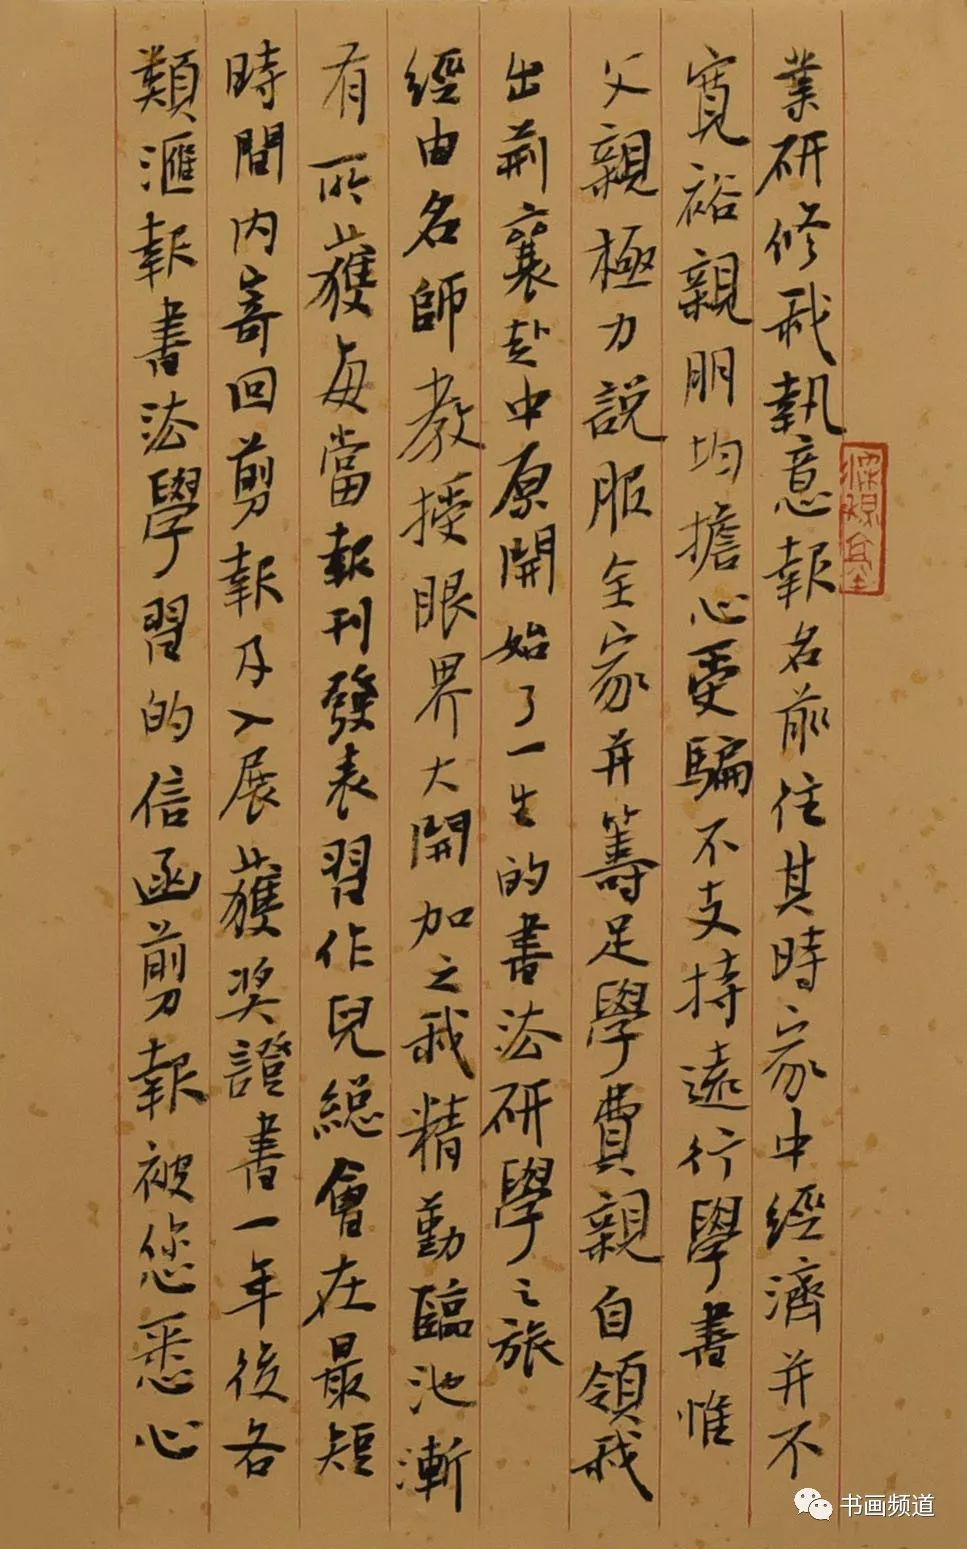 業研修我執意報名前往其時家中經濟并不
寬裕親朋均擔心受騙不支持遠行學書惟
父親極力說服全家并籌足學費親自領我
出荊襄赴中原開始了一生的書法研學之旅
經由名師教授眼界大開加之我精勤臨池漸
有所獲每當報刊發表習作兒總會在最短
時間內寄回剪報及入展獲奖證書一年後各
類滙報書法學習的信函剪報被您悉心
书画频道